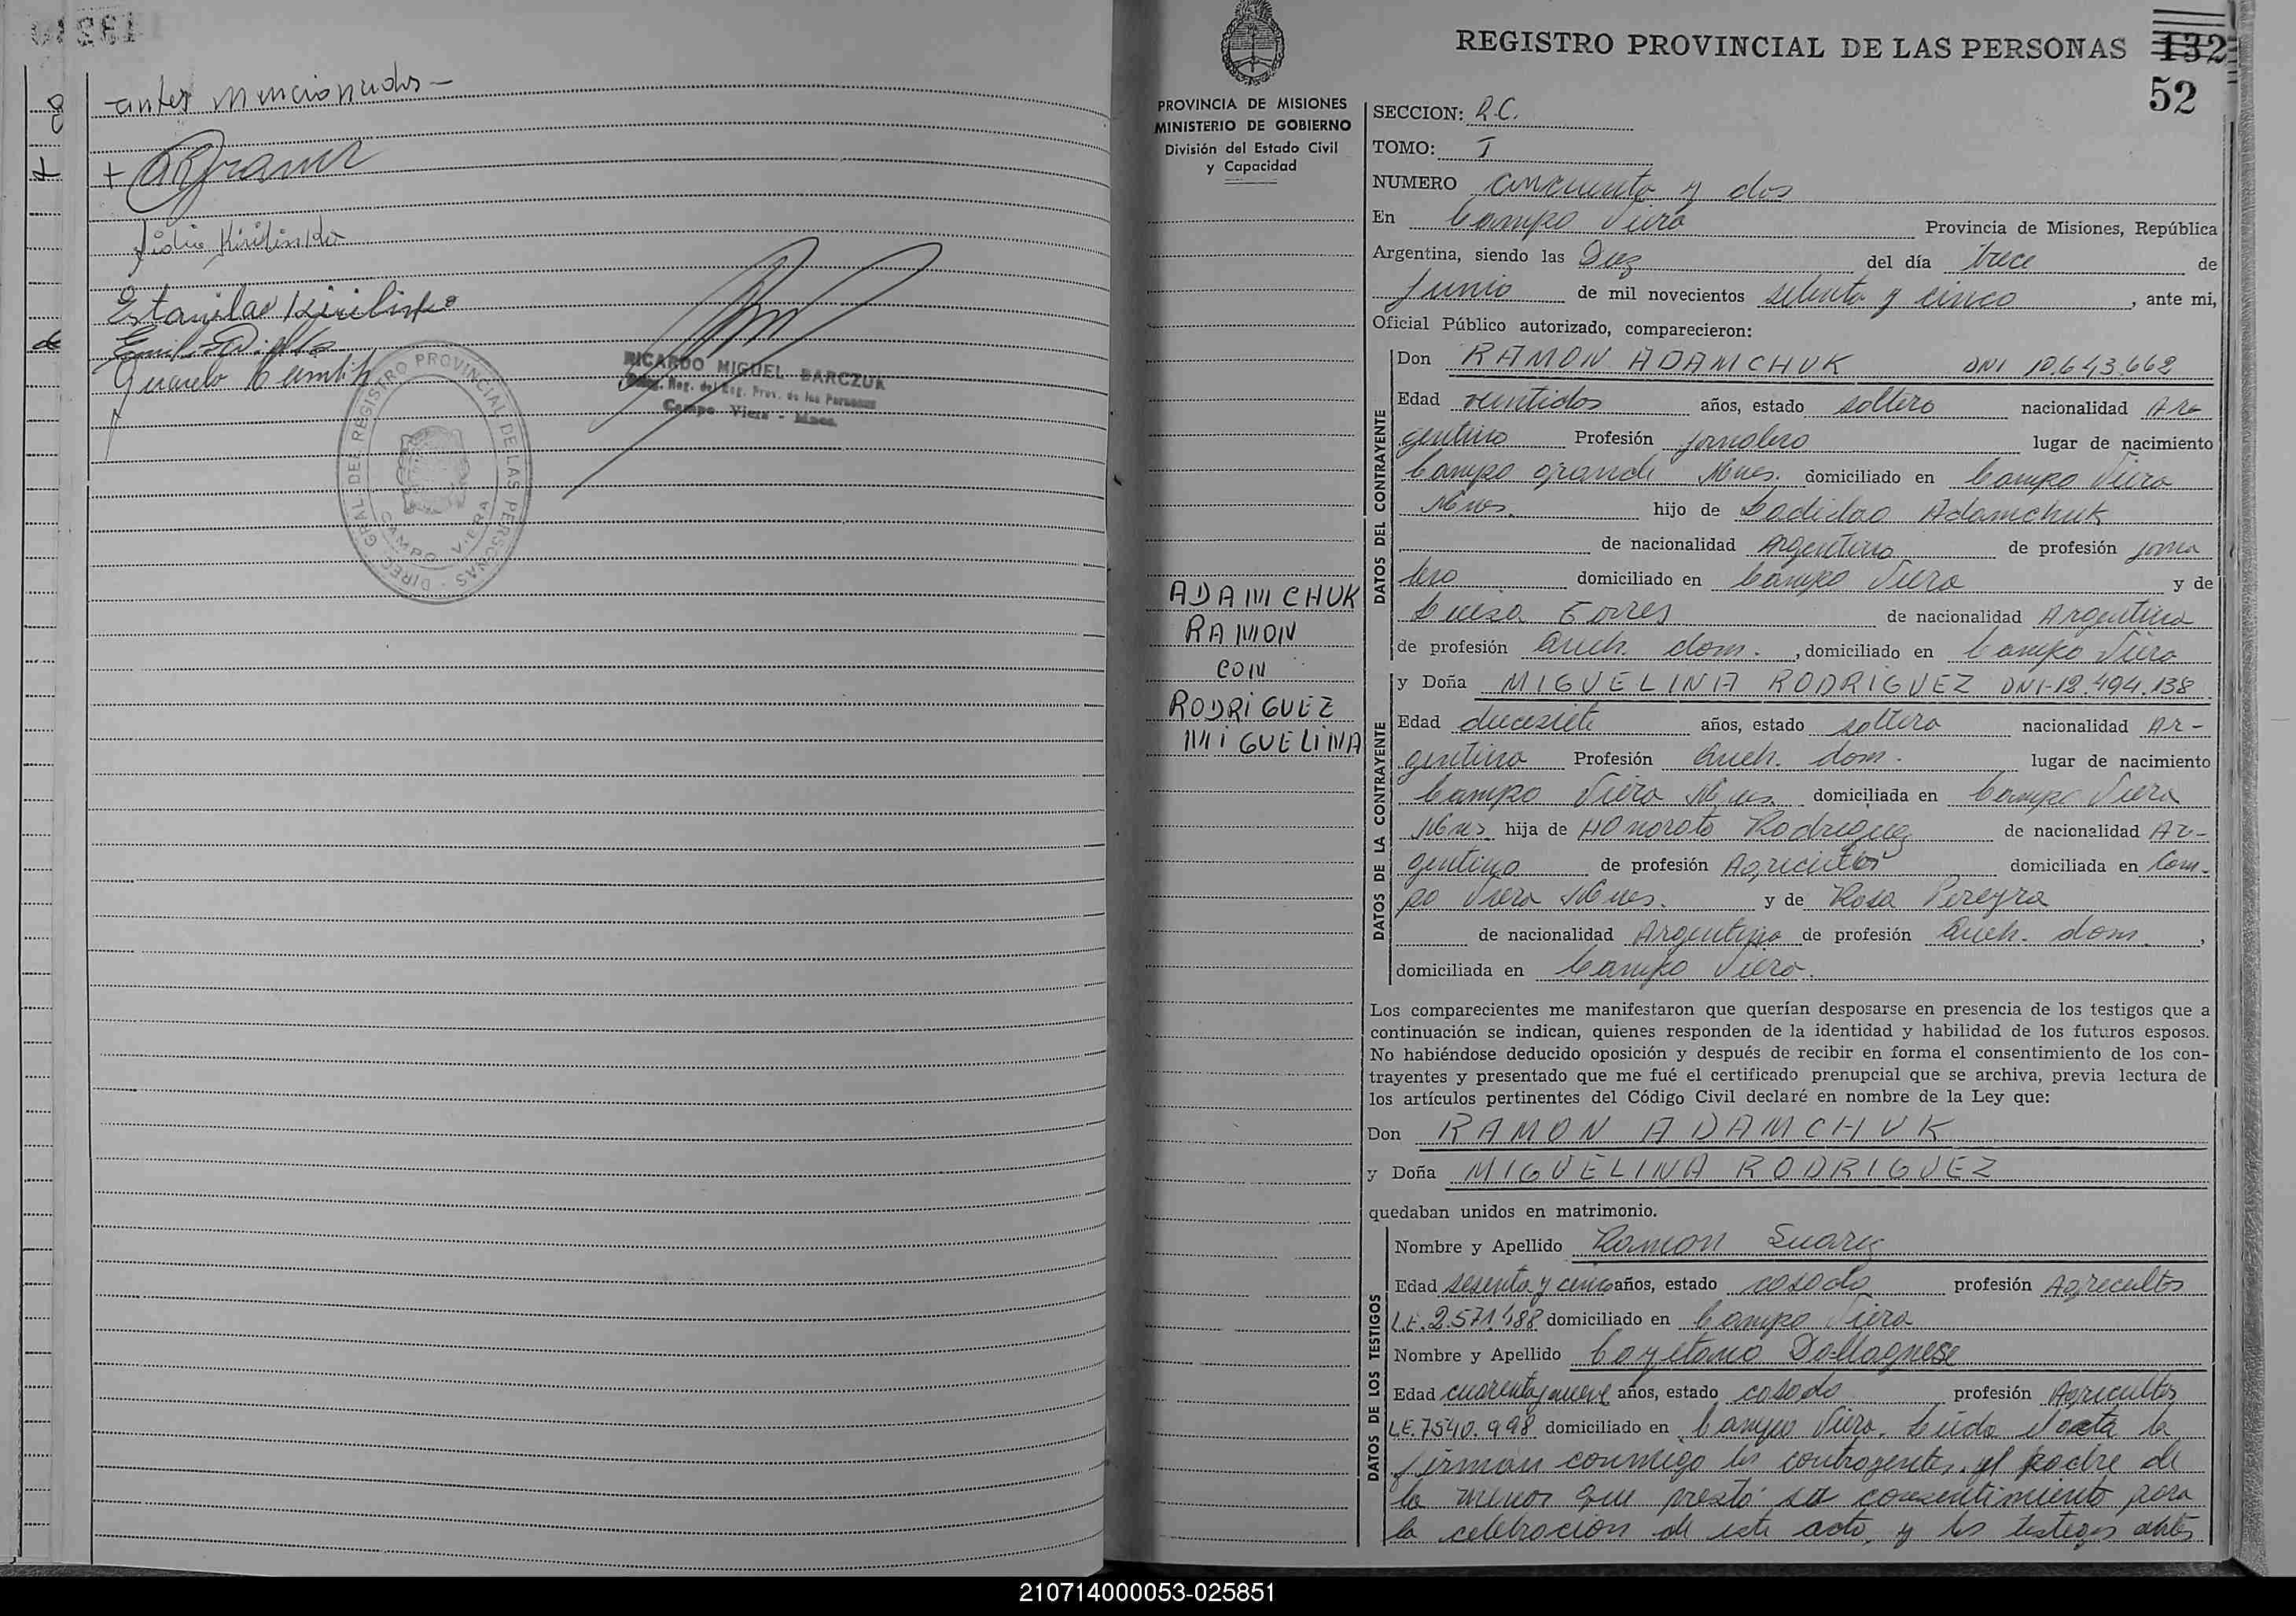 antes mencionados—
Estanislao Kirilinko
RICARDO MIGUEL BARCZUK
Deleg. Reg. del Reg. Prov. de las Personas
Campo Viera - Mnes.
DIREC. GRAL. DEL REGISTRO PROVINCIAL DE LAS PERSONAS
CAMPO VIERA
REGISTRO PROVINCIAL DE LAS PERSONAS 132
52
PROVINCIA DE MISIONES
MINISTERIO DE GOBIERNO
División del Estado Civil
y Capacidad
ADAMCHUK
RAMON
CON
RODRIGUEZ
MIGUELINA
SECCION: R.C.
TOMO: I
NUMERO cincuenta y dos
En Campo Viera Provincia de Misiones, República
Argentina, siendo las Diez del día trece de
Junio de mil novecientos setenta y cinco, ante mi,
Oficial Público autorizado, comparecieron:
DATOS DEL CONTRAYENTE
Don RAMON ADAMCHUK DNI 10.643.662
Edad veintidos años, estado soltero nacionalidad Ar-
gentino Profesión jornalero lugar de nacimiento
Campo grande Mnes. domiciliado en Campo Viera
Mnes. hijo de Ladislao Adamchuk
de nacionalidad Argentino de profesión jorna
lero domiciliado en Campo Viera y de
Luisa Torres de nacionalidad Argentina
de profesión Queh. dom. , domiciliado en Campo Viera
DATOS DE LA CONTRAYENTE
y Doña MIGUELINA RODRIGUEZ DNI-12.494.138
Edad diecisiete años, estado soltera nacionalidad Ar-
gentina Profesión Queh. dom. lugar de nacimiento
Campo Viera Mnes. domiciliada en Campo Viera
Mnes hija de Honorato Rodriguez de nacionalidad Ar-
gentino de profesión Agricultor domiciliada en Cam-
po Viera Mnes. y de Rosa Pereyra
de nacionalidad Argentina de profesión Queh. dom. ,
domiciliada en Campo Viera.
Los comparecientes me manifestaron que querían desposarse en presencia de los testigos que a
continuación se indican, quienes responden de la identidad y habilidad de los futuros esposos.
No habiéndose deducido oposición y después de recibir en forma el consentimiento de los con-
trayentes y presentado que me fué el certificado prenupcial que se archiva, previa lectura de
los artículos pertinentes del Código Civil declaré en nombre de la Ley que:
Don RAMON ADAMCHUK
y Doña MIGUELINA RODRIGUEZ
quedaban unidos en matrimonio.
DATOS DE LOS TESTIGOS
Nombre y Apellido Ramon Suarez
Edad sesenta y cinco años, estado casado profesión Agricultor
L.E. 2.571.488 domiciliado en Campo Viera
Nombre y Apellido Cayetano Dallagnese
Edad cuarenta y nueve años, estado casado profesión Agricultor
L.E. 7540.998 domiciliado en Campo Viera. Leída el acta la
firman conmigo los contrayentes, el padre de
la menor que prestó su consentimiento para
la celebracion de este acto, y los testigos antes
210714000053-025851